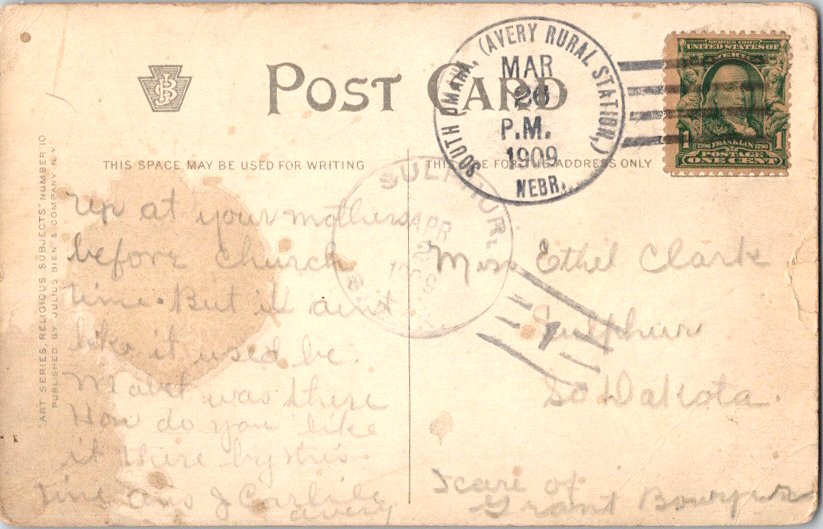 POST CARD
THIS SPACE MAY BE USED FOR WRITING
THIS SPACE FOR THE ADDRESS ONLY
SOUTH OMAHA, (AVERY RURAL STATION,)
MAR
P.M.
1909
NEBR.
UNITED STATES OF
FRANKLIN
1 1
POSTAGE
ONE CENT
APR
"ART SERIES, RELIGIOUS SUBJECTS" NUMBER 10
PUBLISHED BY JULIUS BIEN & COMPANY N.Y.
up at your mothers
before church
time. But it aint
like it used be.
Mabel was there
How do you like
it there by this
time ans J Carlile
avery
Miss Ethel Clark
Sulphur
So Dakota.
care of
Grant